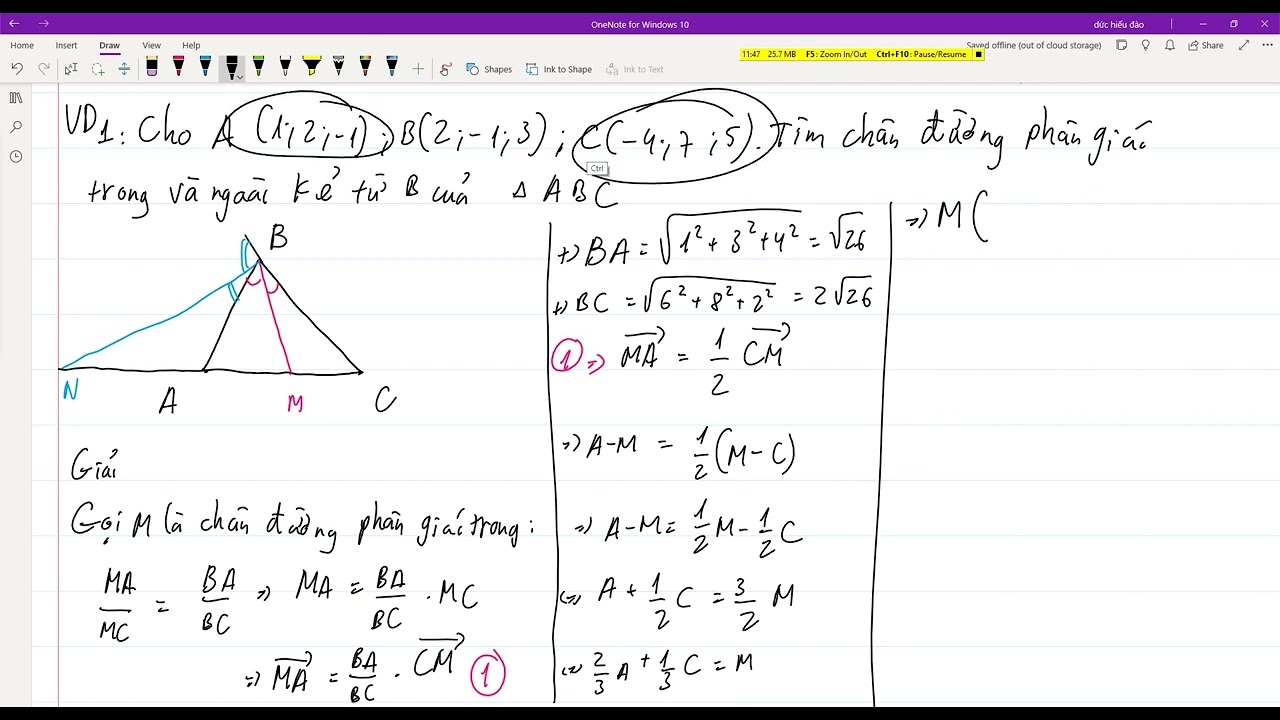 OneNote for Windows 10
đức hiếu đào
Home Insert Draw View Help
Saved offline (out of cloud storage)
Share
11:47 25.7 MB F5: Zoom In/Out Ctrl+F10: Pause/Resume
Shapes Ink to Shape Ink to Text
VD1: Cho A (1;2;-1); B(2;-1;3); C(-4;7;5). Tìm chân đường phân giác
Ctrl
trong và ngoài kẻ từ B của Δ ABC
B
N A M C
Giải
Gọi M là chân đường phân giác trong:
MA/MC = BA/BC => MA = BA/BC . MC
=> \overrightarrow{MA} = BA/BC . \overrightarrow{CM} ①
+) BA = √(1² + 3² + 4²) = √26
+) BC = √(6² + 8² + 2²) = 2√26
① => \overrightarrow{MA} = 1/2 \overrightarrow{CM}
=> A-M = 1/2 (M-C)
=> A-M = 1/2 M - 1/2 C
<=> A + 1/2 C = 3/2 M
<=> 2/3 A + 1/3 C = M
=> M (